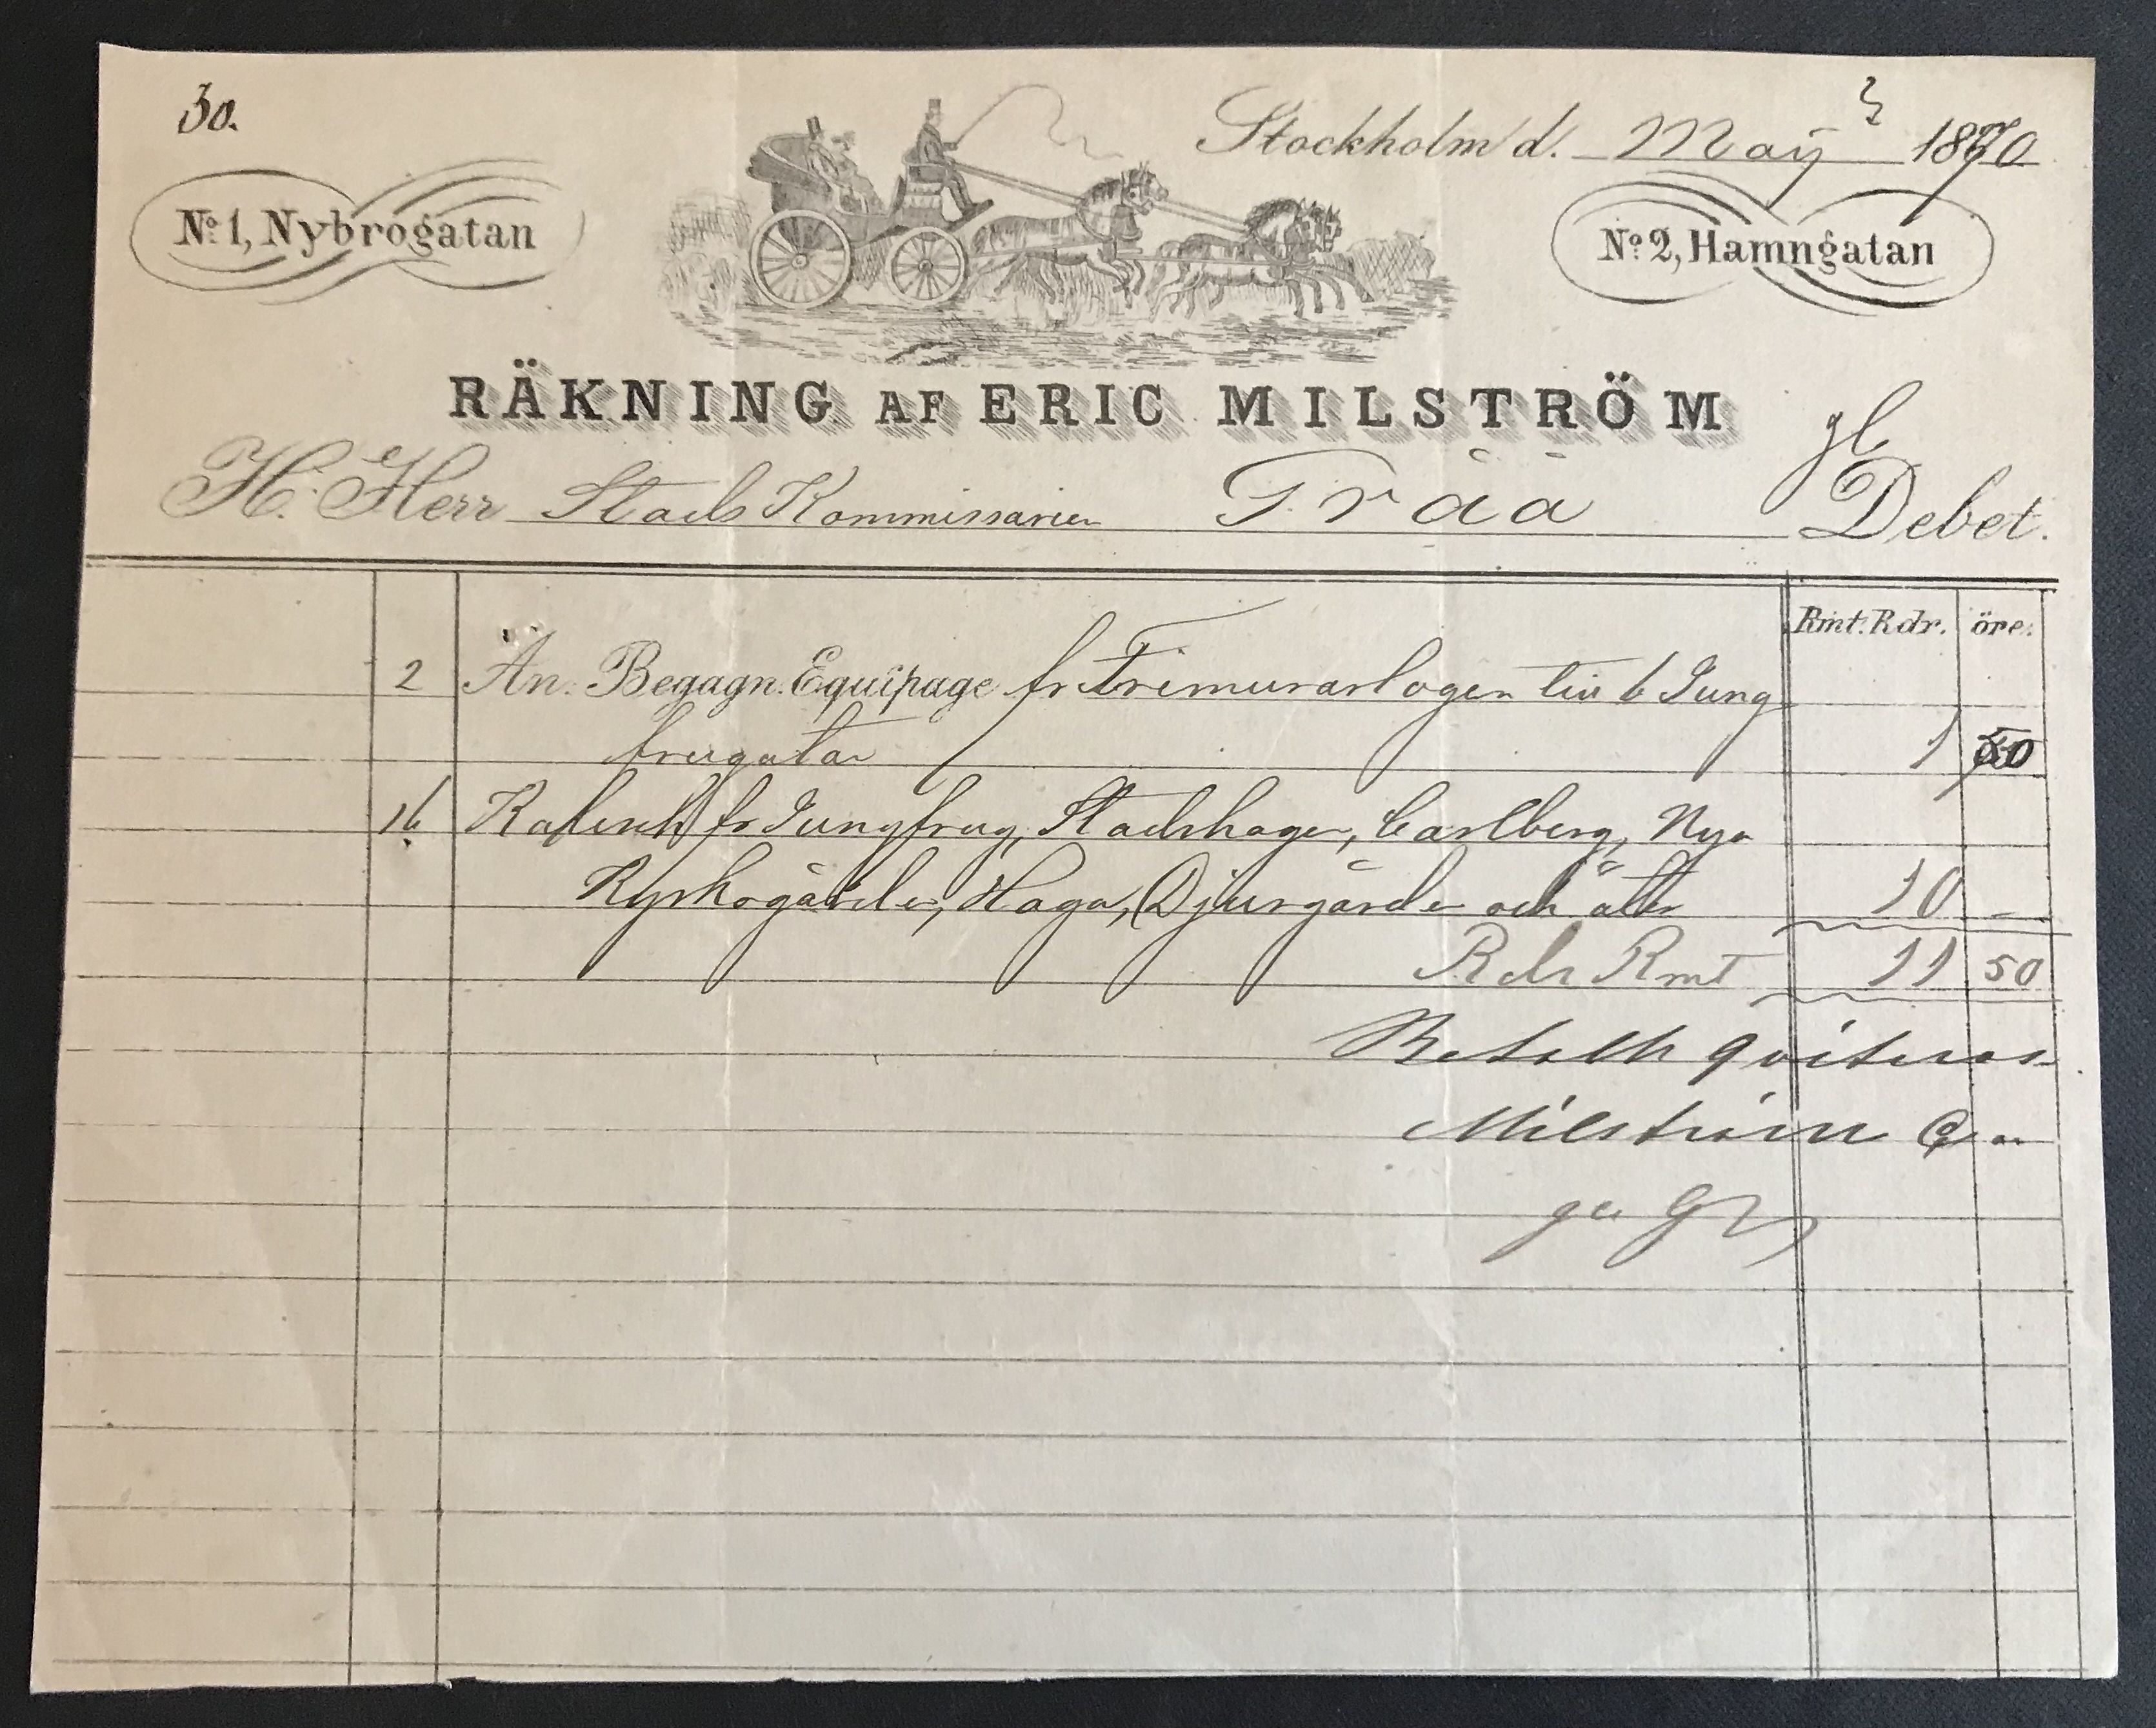 30.
Stockholm d. Maij 3 1870
No. 1, Nybrogatan
No. 2, Hamngatan
RÄKNING AF ERIC MILSTRÖM
H. Herr Stads Kommissarien Trää Debet.
Rmt. Rdr. öre.
2 Än. Begagn. Equipage fr Frimurarlogen till 6 Jung
frugatan 1 50
16 Kalesch fr Jungfrug, Stadshagen, Carlberg, Nya
Kyrkogården, Haga, Djurgården och åter 10 -
Rdr Rmt 11 50
Betalt qvitteras
Milström